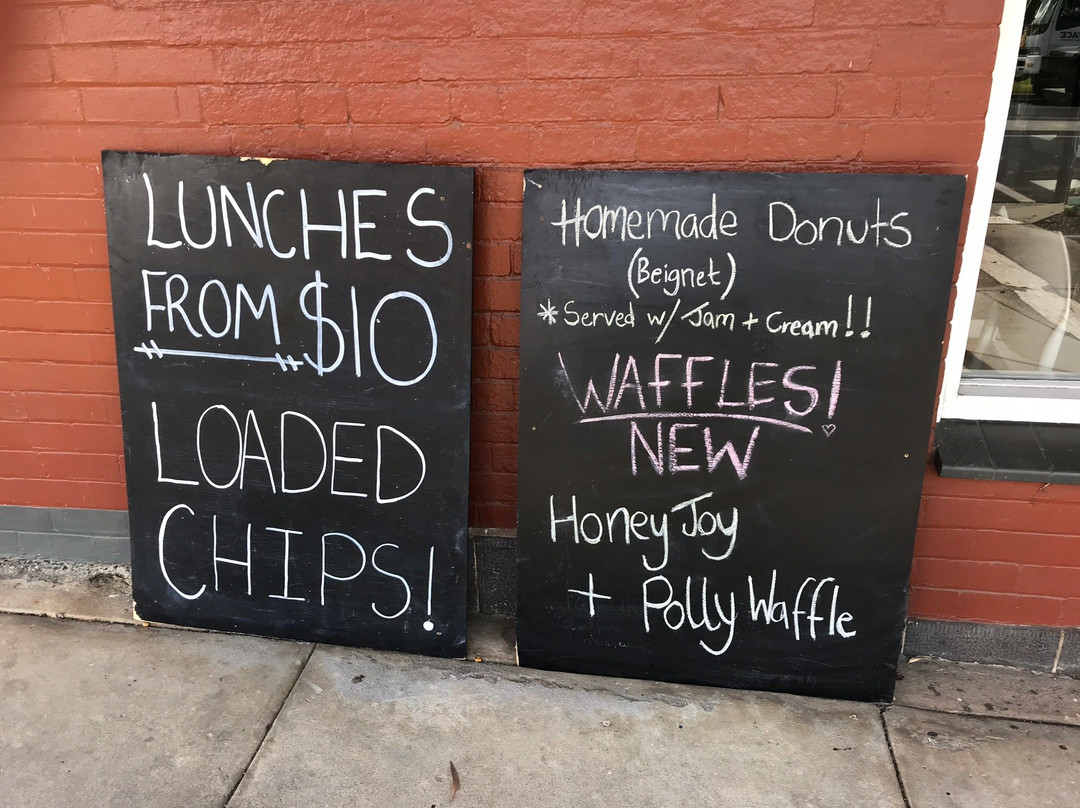 LUNCHES
FROM $10
LOADED
CHIPS!
Homemade Donuts
(Beignet)
* Served w/ Jam + Cream!!
WAFFLES!
NEW
Honey Joy
+ Polly Waffle